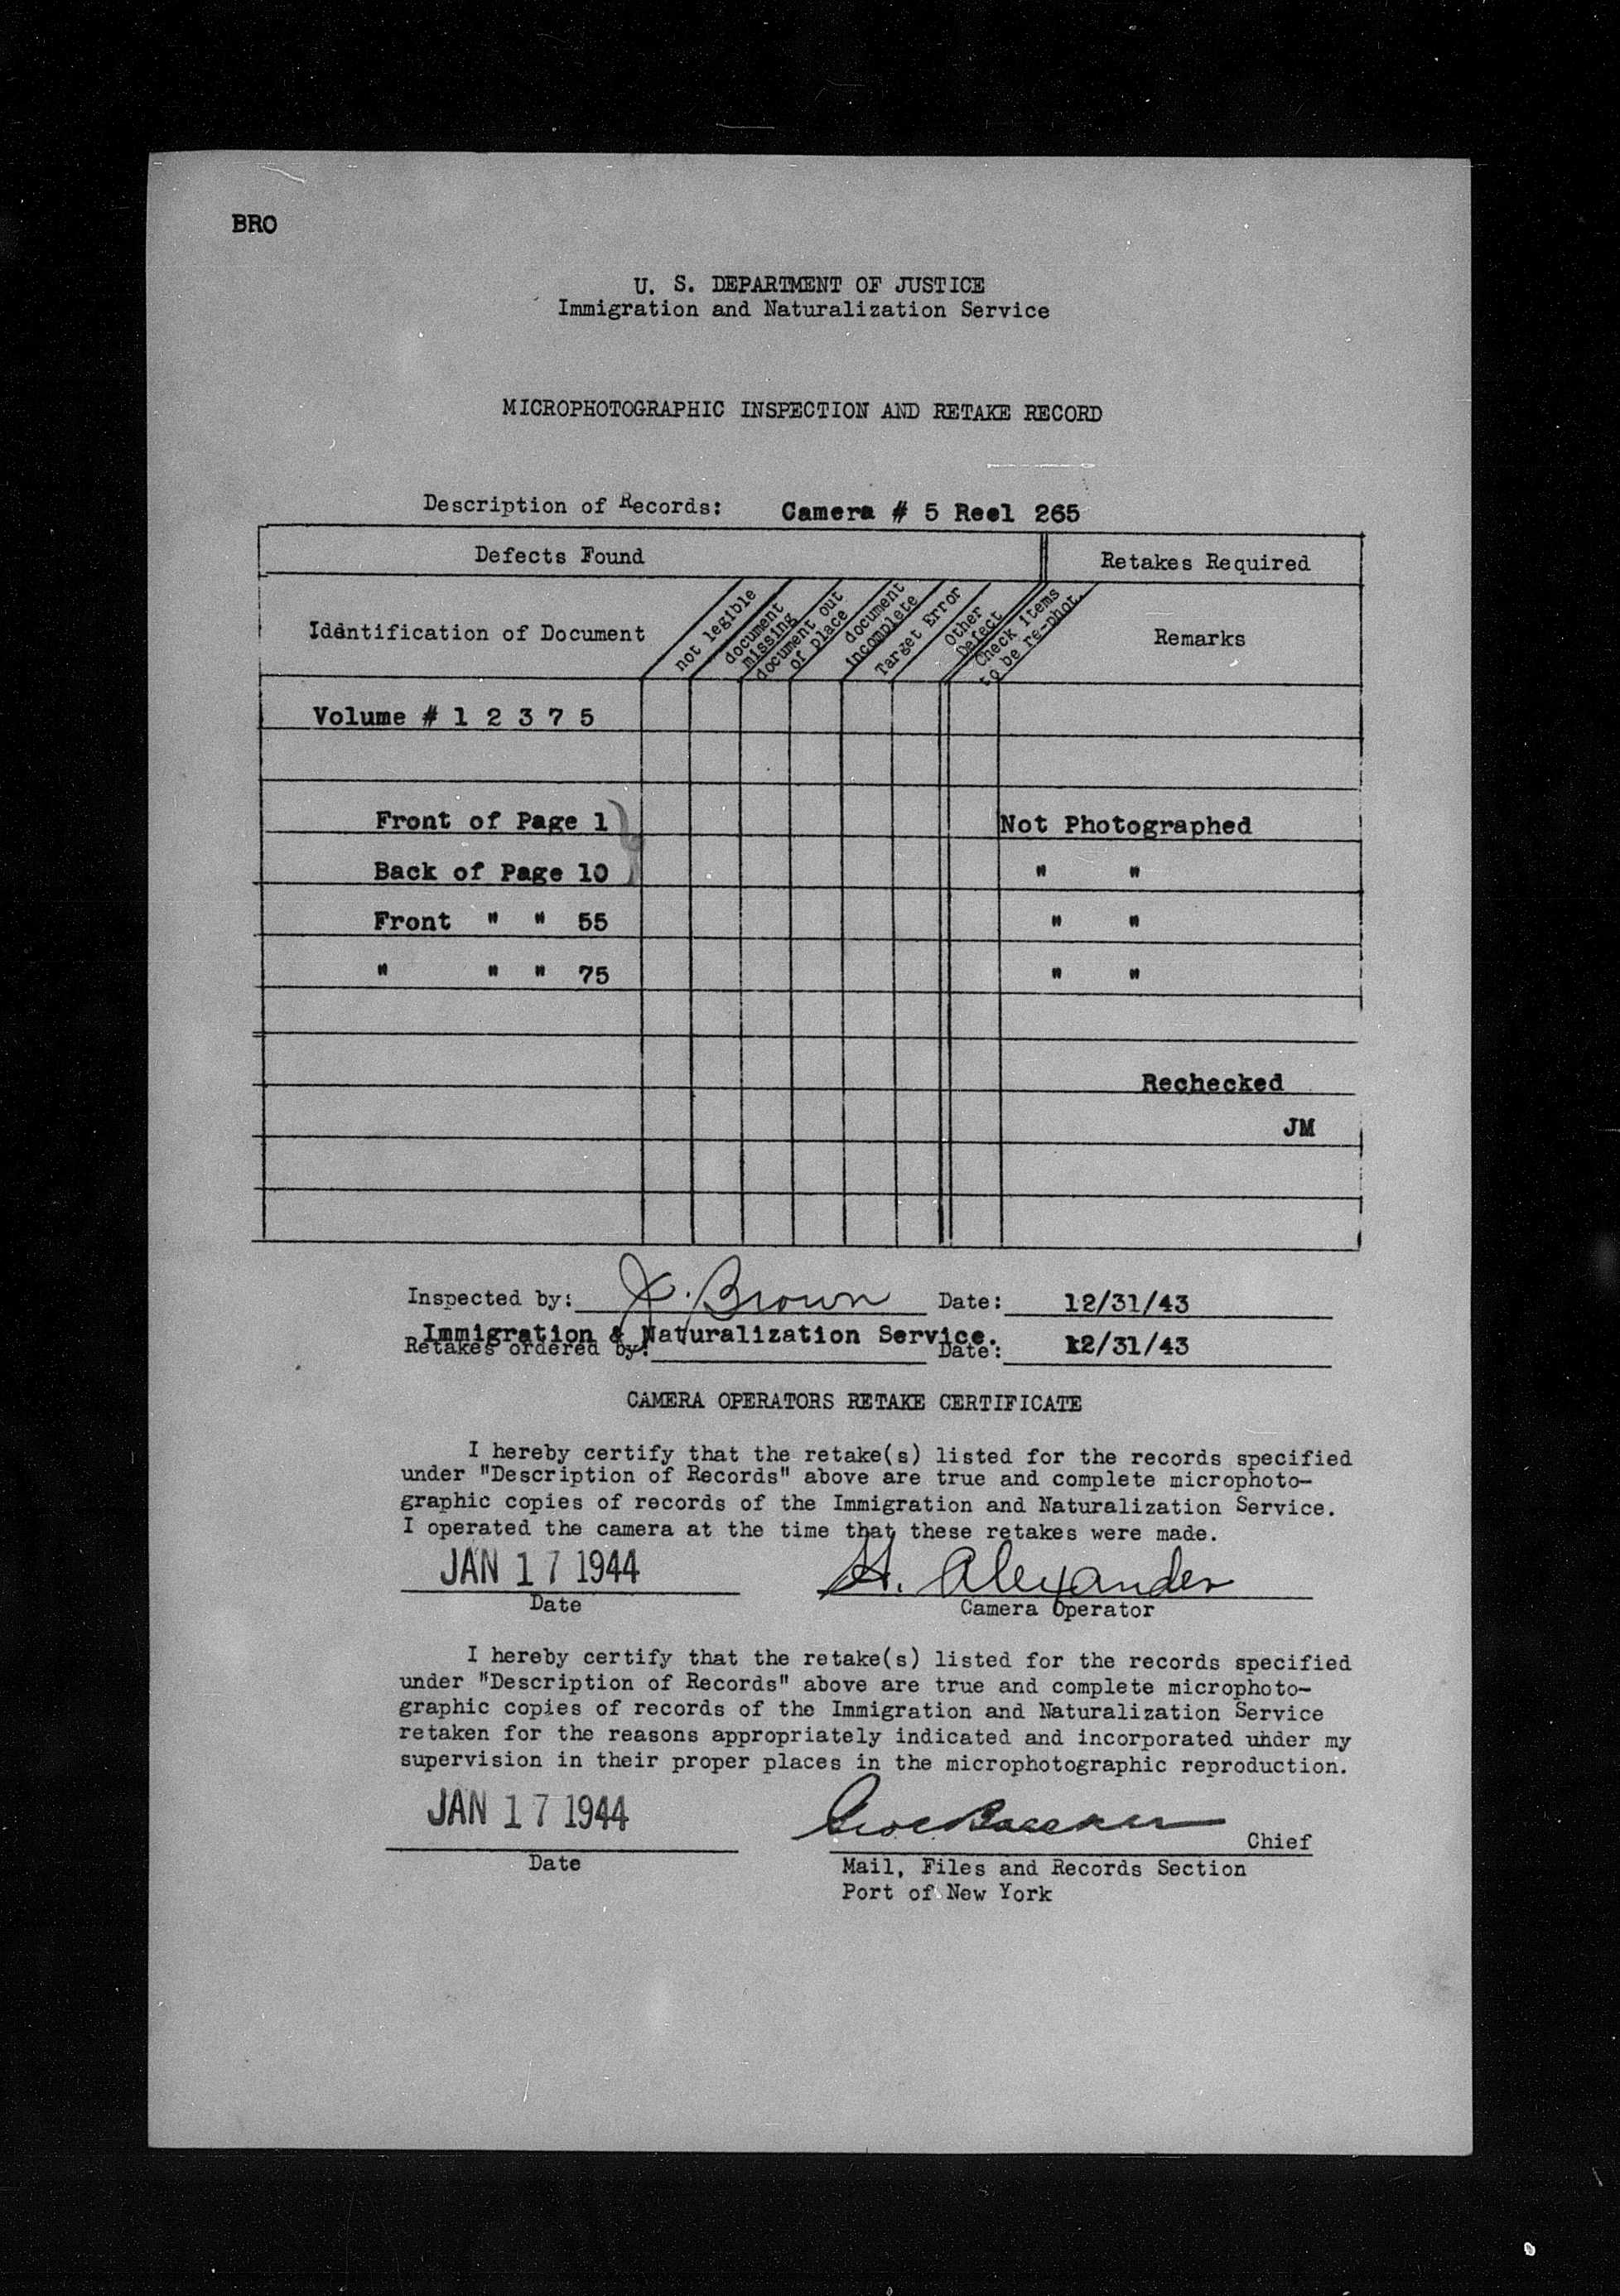 BRO
U. S. DEPARTMENT OF JUSTICE
Immigration and Naturalization Service
MICROPHOTOGRAPHIC INSPECTION AND RETAKE RECORD
Description of Records: Camera # 5 Reel 265
Defects Found
Retakes Required
Identification of Document
not legible
document missing
document out of place
document incomplete
Target Error
Other Defect
Check items to be re-phot.
Remarks
Volume # 1 2 3 7 5
Front of Page 1 Not Photographed
Back of Page 10 " "
Front " " 55 " "
" " " 75 " "
Rechecked
JM
Inspected by: J. Brown Date: 12/31/43
Immigration & Naturalization Service.
Retakes ordered by: Date: 12/31/43
CAMERA OPERATORS RETAKE CERTIFICATE
I hereby certify that the retake(s) listed for the records specified
under "Description of Records" above are true and complete microphoto-
graphic copies of records of the Immigration and Naturalization Service.
I operated the camera at the time that these retakes were made.
JAN 17 1944 H. Alexander
Date Camera Operator
I hereby certify that the retake(s) listed for the records specified
under "Description of Records" above are true and complete microphoto-
graphic copies of records of the Immigration and Naturalization Service
retaken for the reasons appropriately indicated and incorporated under my
supervision in their proper places in the microphotographic reproduction.
JAN 17 1944
Chief
Date Mail, Files and Records Section
Port of New York